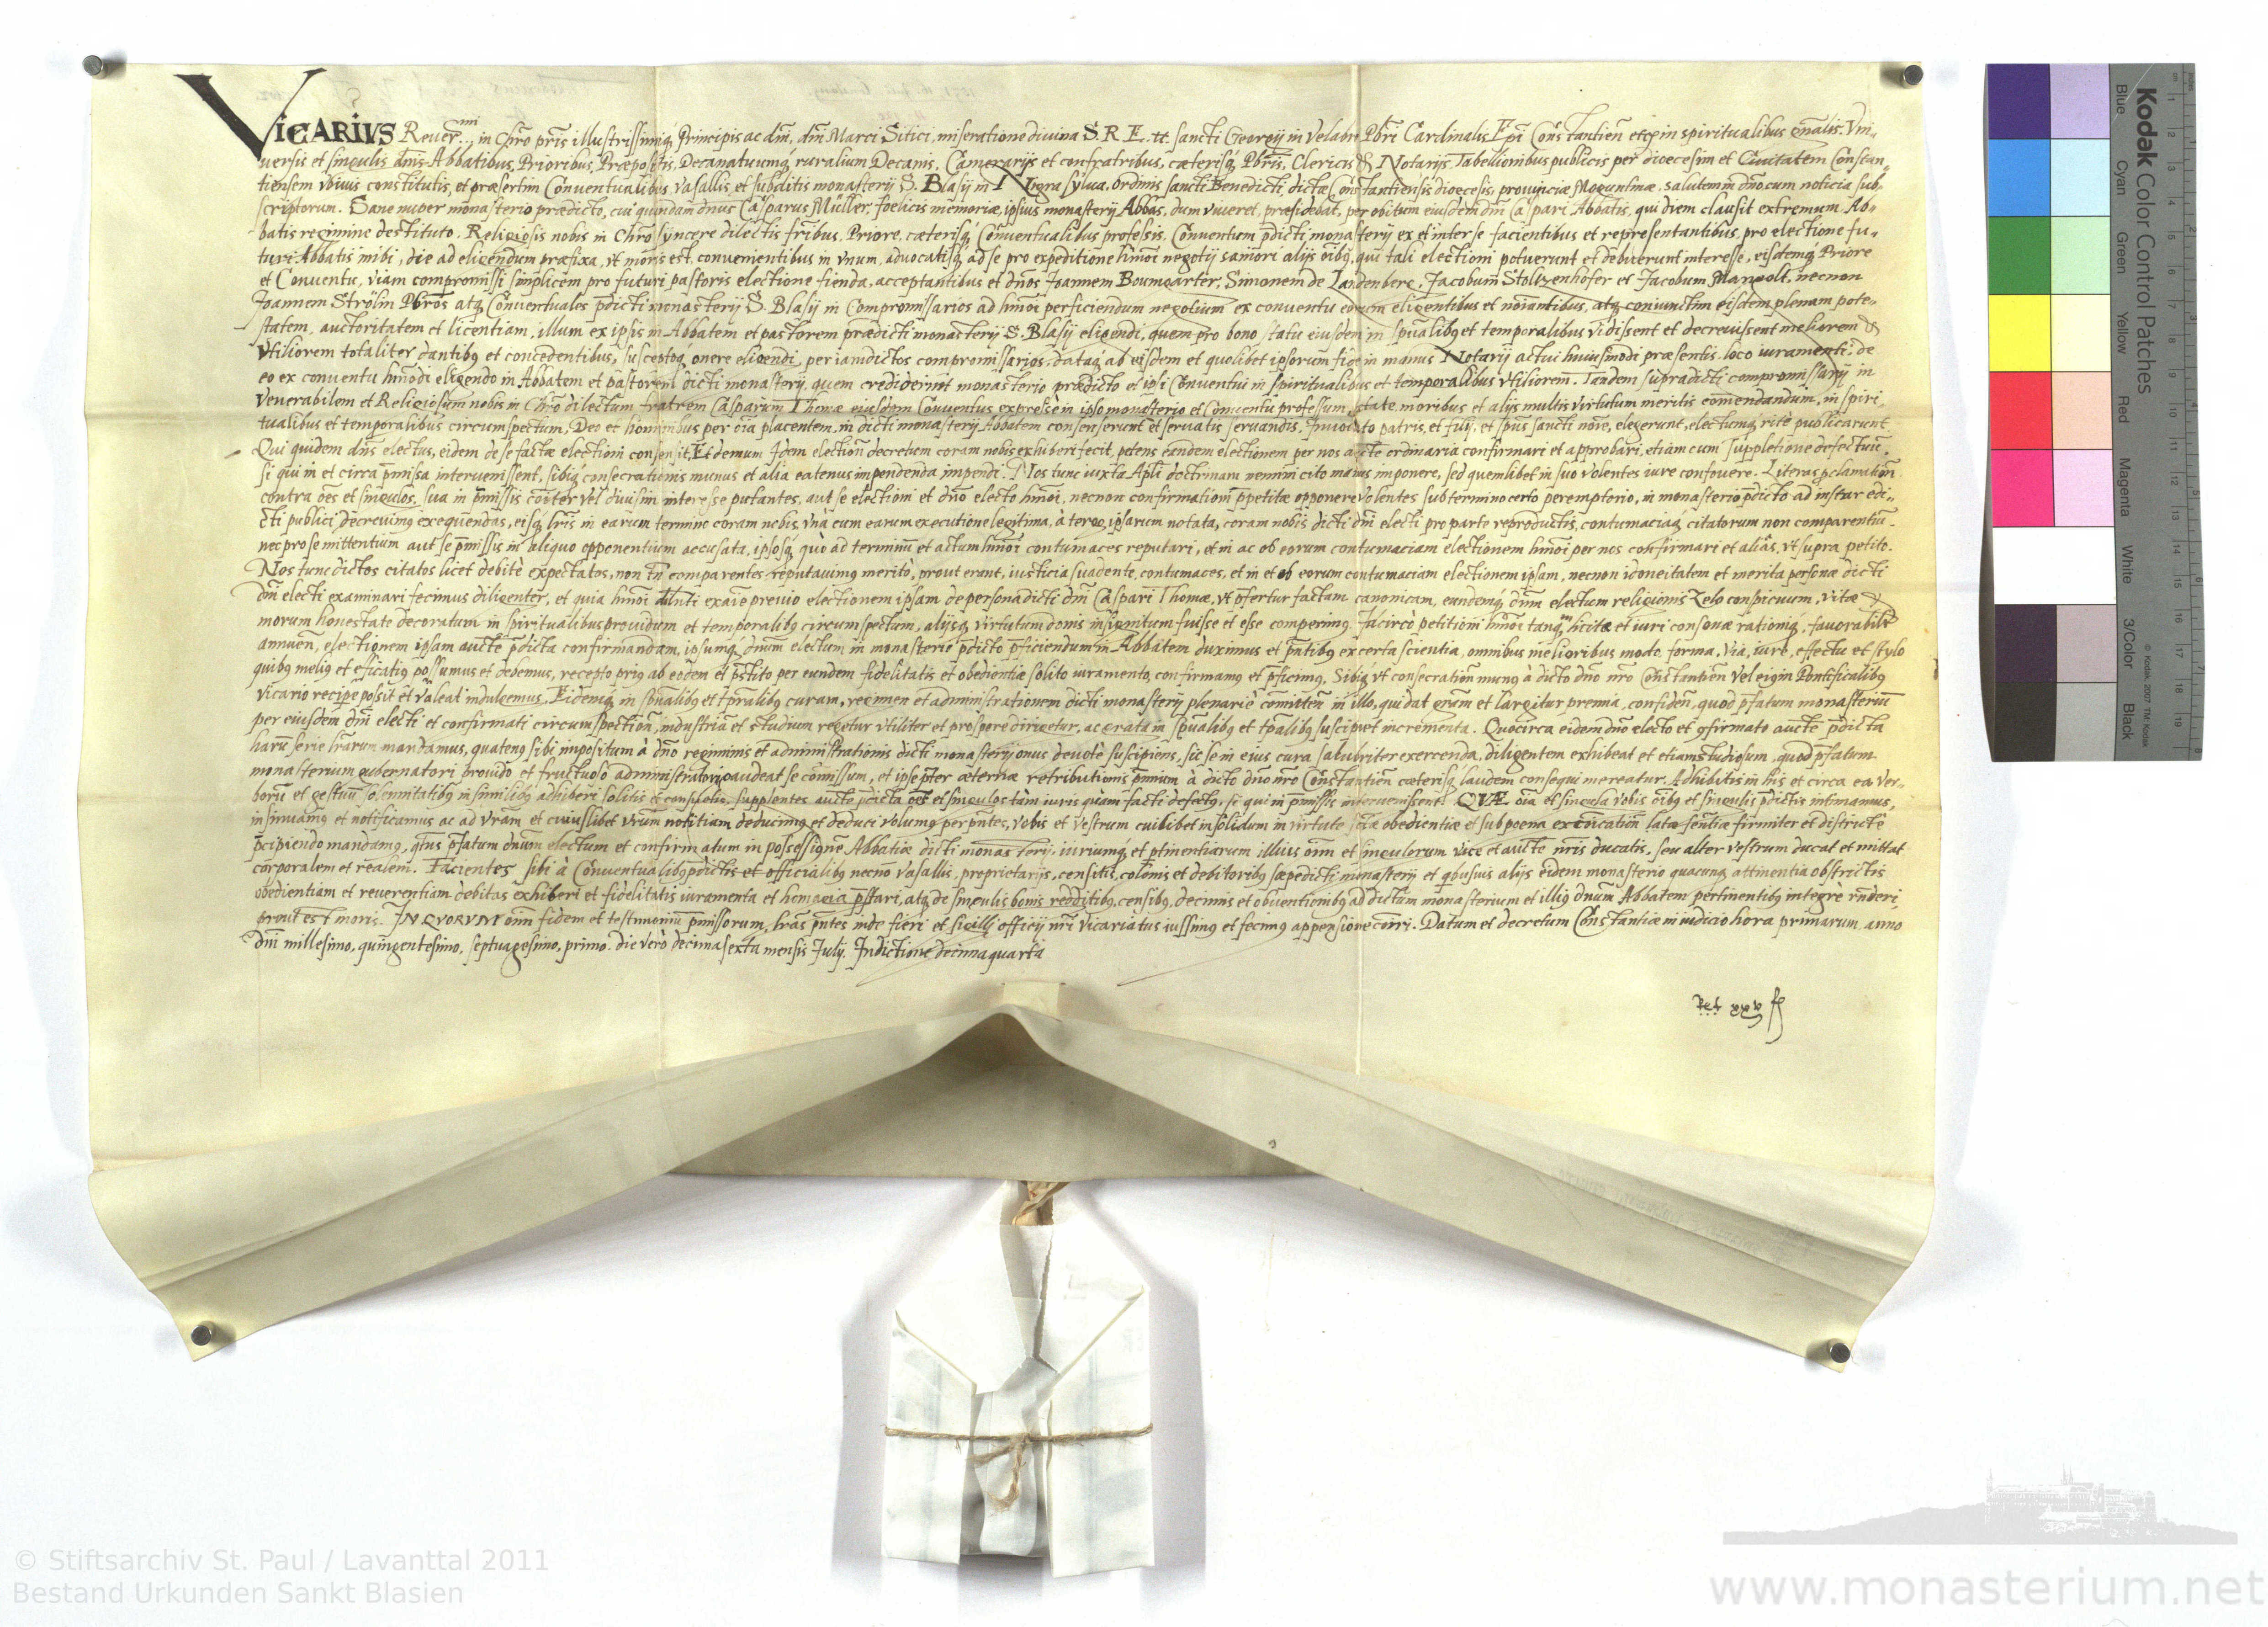 VICARIVS Reuer.mi in Chro pris illustrissimiq; Principis ac dni, dni Marci Sitici, miseratione diuina S. R. E. tt. sancti Georgij in Velabr Pbri Cardinalis Epi Constantien etc; in spiritualibus gnalis. Vni-
uersis et singulis dnis Abbatibus, Prioribus, Præpositis, Decanatuumq; ruralium Decanis, Camerarijs et confratribus, cæterisq; Pbris, Clericis & Notarijs Tabellionibus publicis per diœcesim et Ciuitatem Constan-
tiensem vbiuis constitutis, et præsertim Conuentualibus vasallis et subditis monasterij S. Blasij in Nigra sylua, ordinis sancti Benedicti, dictæ Constantiensis diœcesis, prouinciæ Moguntinæ, salutem in dno cum noticia sub-
scriptorum. Sane nuper monasterio prædicto, cui quondam dnus Casparus Müller, fœlicis memoriæ, ipsius monasterij Abbas, dum viueret, præsidebat, per obitum eiusdem dni Caspari Abbatis, qui diem clausit extremum, Ab-
batis regimine destituto. Religiosis nobis in Chro syncere dilectis fribus, Priore, cæterisq; Conuentualibus professis, Conuentum pdicti monasterij ex et inter se facientibus et representantibus, pro electione fu-
turi Abbatis inibi, die ad eligendum præfixa, vt moris est, conuenientibus in vnum, aduocatisq; ad se pro expeditione hmoi negotij saniori alijs oibq; qui tali electioni potuerunt et debuerunt interesse, eisdemq; Priore
et Conuentu, viam compromissi simplicem pro futuri pastoris electione fienda, acceptantibus et dnos Joannem Boumgarter, Simonem de Landenberc, Jacobum Stoltzenhofer et Jacobum Margolt, necnon
Joannem Strölin Pbros atq; Conuentuales pdicti monasterij S. Blasij in Compromissarios ad hmoi perficiendum negotium ex conuentu eorum eligentibus et noiantibus, atq; coniunctim eisdem plenam pote-
statem, auctoritatem et licentiam, illum ex ipsis in Abbatem et pastorem prædicti monasterij S. Blasij eligendi, quem pro bono statu eiusdem in spualibq et temporalibus vidissent et decreuissent meliorem &
vtiliorem totaliter dantibq et concedentibus, susceptoq; onere eligendi, per iamdictos compromissarios, dataq; ab eisdem et quolibet ipsorum fide in manus Notarij actui huiusmodi præsentis loco iuramenti, de
eo ex conuentu hmodi eligendo in Abbatem et pastorem dicti monasterij, quem crediderint monasterio prædicto et ipsi Conuentui in spiritualibus et temporalibus vtiliorem. Tandem supradicti compromissarij in
Venerabilem et Religiosum nobis in Chro dilectum fratrem Casparum Thomæ eiusdem Conuentus expressè in ipso monasterio et Conuentu professum, ætate, moribus et alijs multis virtutum meritis comendandum, in spiri-
tualibus et temporalibus circumspectum, Deo et hominibus per oia placentem, in dicti monasterij Abbatem consenserunt et seruatis seruandis, Inuocato patris, et filij, et spus sancti noie, elegerunt, electumq; ritè publicarunt.
Qui quidem dns electus, eidem de se factæ electioni consensit, Et demum Idem election decretum coram nobis exhiberi fecit, petens eandem electionem per nos aucte ordinaria confirmari et approbari, etiam cum suppletione defectuu,
si qui in et circa pmissa interuenissent, sibiq; consecrationis munus et alia eatenus impendenda impendi. Nos tunc iuxta Apli doctrinam nemini cito manus imponere, sed quemlibet in suo volentes iure confouere. Literas pclamation
contra oes et singulos, sua in pmissis coiter vel diuisim interesse putantes, aut se electioni et dno electo hmoi, necnon confirmationi ppetitæ opponere volentes sub termino certo peremptorio, in monasterio pdicto ad instar edi-
cti publici decreuimq exequendas, eisq; lris in earum termino coram nobis, vnà cum earum executione legitima, à tergo, ipsarum notata, coram nobis dicti dni electi pro parte reproductis, contumaciaq; citatorum non comparentiu
nec pro se mittentium aut se pmissis in aliquo opponentium accusata, ipsosq; quò ad terminu et actum hmoi contumaces reputari, et in ac ob eorum contumaciam electionem hmoi per nos confirmari et aliâs, vt supra petito.
Nos tunc dictos citatos licet debitè expectatos, non tn comparentes reputauimq meritò, prout erant, iusticia suadente, contumaces, et in et ob eorum contumaciam electionem ipsam, necnon idoneitatem et merita personæ dicti
dni electi examinari fecimus diligenter, et quia hmoi diligenti exaie preuio electionem ipsam de persona dicti dni Caspari Thomæ, vt pfertur factam canonicam, eundemq; dnm electum religionis zelo conspicuum, vitæ &
morum honestate decoratum in spiritualibus prouidum et temporalibq circumspectum, alijsq; virtutum donis insignitum fuisse et esse comperimq. Idcircò petitioni hmoi tanq licitæ et iuri consonæ rationiq; fauorabilr
annuen, electionem ipsam aucte pdicta confirmandam, ipsumq; dnum electum in monasterie pdicto pficiendum in Abbatem duximus et pntibq ex certa scientia, omnibus melioribus modo, forma, via, iure, effectu et stylo
quibq meliq et efficatiq possumus et debemus, recepto priq ab eodem et pstito per eundem fidelitatis et obedientiæ solito iuramento, confirmamq et pficimq, Sibiq; vt consecration munq à dicto dno nro Constantien vel eiq in Pontificalibq
vicario recipe possit et valeat indulgemus, Eidemq; in spualibq et tpralibq curam, regimen et administrationem dicti monasterij plenariè comitten in illo, qui dat gram et largitur premia, confiden, quod pfatum monasteriu
per eiusdem dni electi et confirmati circumspection, industria et studium regetur vtiliter et prospere dirigetur, ac grata in spualibq et tpalibq suscipiet incrementa. Quocirca eidem dno electo et cfirmato aucte pdicta
haru serie lrarum mandamus, quatenq sibi impositum à dno regiminis et administrationis dicti monasterij onus deuotè suscipiens, sic se in eius cura salubriter exercenda, diligentem exhibeat et etiam studiosum, quod pfatum
monasterium gubernatori prouido et fructuoso administratori gaudeat se comissum, et ipse pter æternæ retributionis pmium à dicto dno nro Constantien cæterisq; laudem consequi mereatur. Adhibitis in his et circa ea ver-
boru et gestuu solennitatibq in similibq adhiberi solitis et consuetis, supplentes aucte pdicta oes et singulos tàm iuris quàm facti defectq, si qui in pmissis interuenissent. QVÆ oia et singula vobis oibq et singulis pdictis intimamus,
insinuamq et notificamus ac ad vram et cuiuslibet vrum notitiam deducimq et deduci volumq per pntes, vobis et vestrum cuilibet insolidum in virtute sctæ obedientiæ et sub poena excoication latæ sentiæ firmiter et districtè
pcipiendo mandamq, qtnus pfatum dnum electum et confirmatum in possessione Abbatiæ dicti monasterij, iuriumq; et ptinentiarum illius oim et singulorum vice et aucte nris ducatis, seu alter vestrum ducat et mittat
corporalem et realem. Facientes sibi à Conuentualibq pdictis et officialibq necno vasallis, proprietarijs, censitis, colonis et debitoribq sæpedicti monasterij et qibusuis alijs eidem monasterio quacunq; attinentia obstrictis
obedientiam et reuerentiam debitas exhiberi et fidelitatis iuramenta et homagia pstari, atq; de singulis bonis redditibq, censibq, decimis et obuentionibq ad dictum monasterium et illiq dnum Abbatem pertinentibq integrè rnderi,
prout est moris. IN QVORVM oim fidem et testimoniu pmissorum, lras pntes inde fieri et sigilli officij nri Vicariatus iussimq et fecimq appensione coiri. Datum et decretum Constantiæ in iudicio hora primarum, anno
dni millesimo, quingentesimo, septuagesimo, primo. die verò decima sexta mensis Julij. Indictione decima quarta
Kodak Color Control Patches
Blue Cyan Green Yellow Red Magenta White 3/Color Black
© Kodak, 2007 TM: Kodak
© Stiftsarchiv St. Paul / Lavanttal 2011
Bestand Urkunden Sankt Blasien
www.monasterium.net